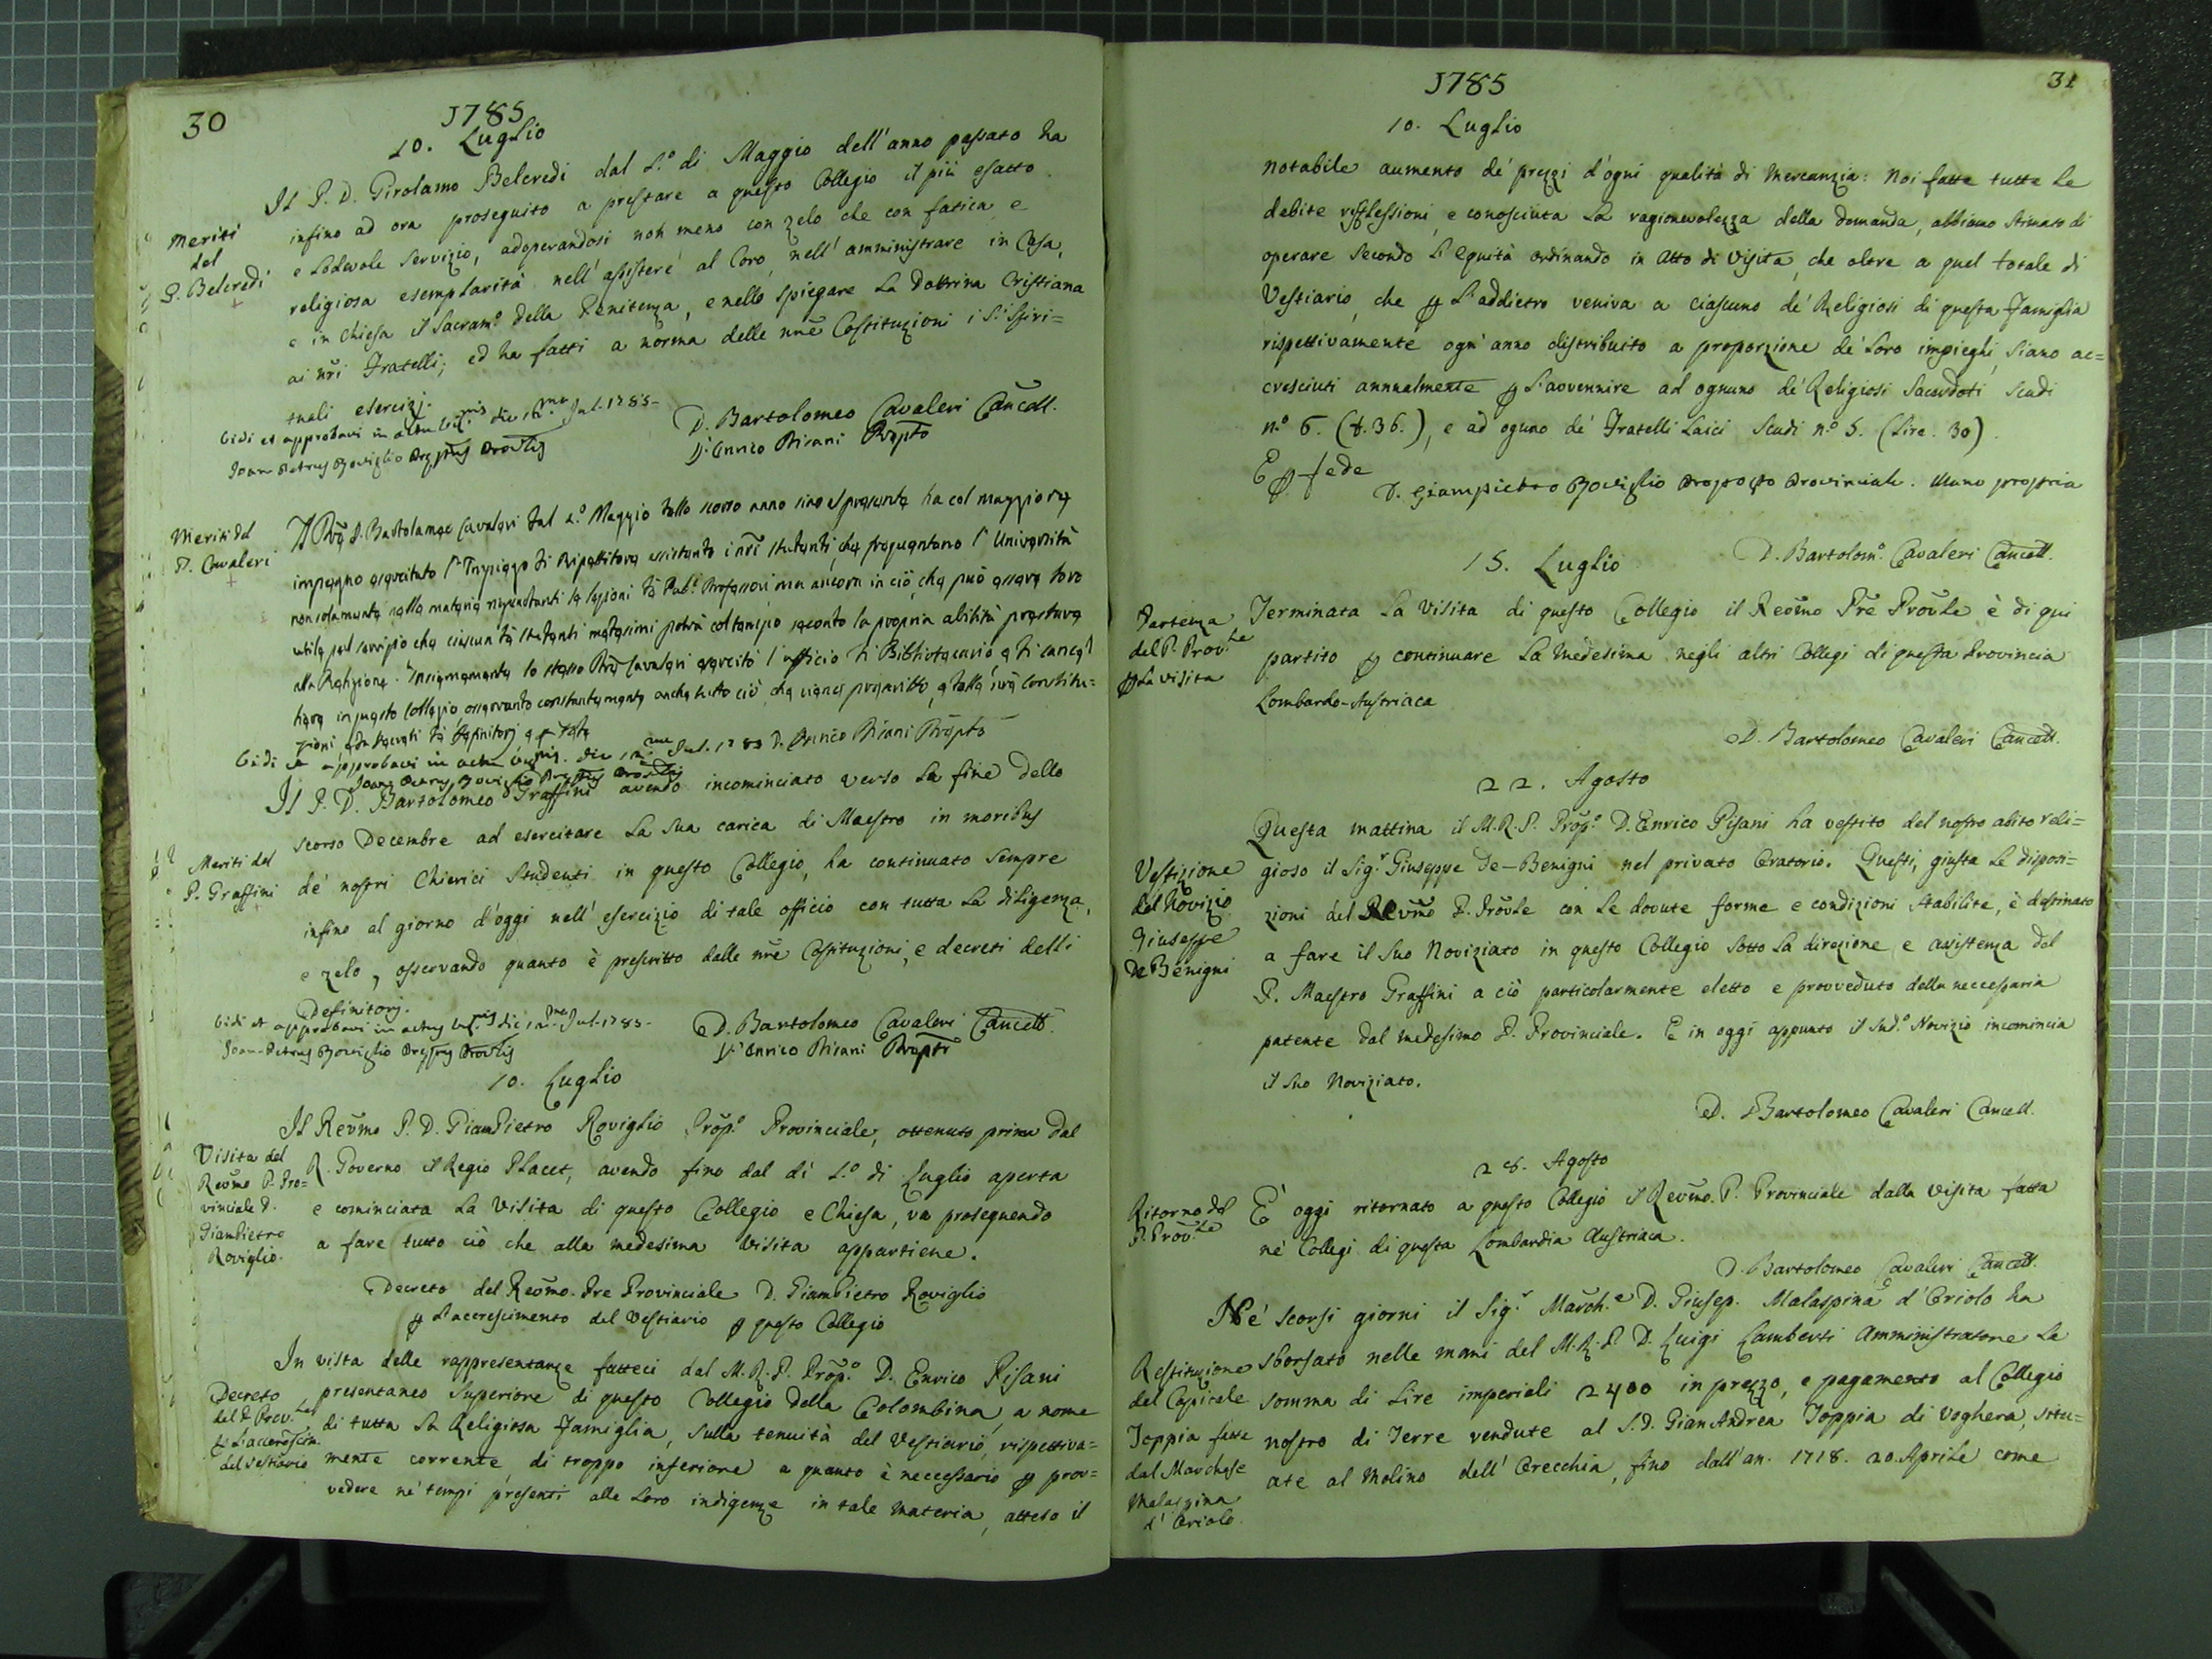 30
1785
10. Luglio
Meriti
del
P. Belcredi
Il P. D. Girolamo Belcredi dal 1.º di Maggio dell'anno passato ha
infino ad ora proseguito a prestare a questo Collegio il più esatto
e lodevole servizio, adoperandosi non meno con zelo che con fatica e
religiosa esemplarità nell'assistere al Coro, nell'amministrare in Casa,
e in Chiesa il Sacram.º della Penitenza, e nello spiegare la Dottrina Cristiana
ai nr̃i Fratelli; ed ha fatti a norma delle nr̃e Costituzioni i S.ᵗⁱ Spiri=
tuali esercizj.
Vidi et approbavi in actu Vis.nis die 10.ma Jul. 1785-
Joan Petrus Roviglio Præptus Prov̄lis
D. Bartolomeo Cavaleri Cancell.
D. Enrico Pisani Propto
Meriti del
P. Cavaleri
Il Pr̃e D. Bartolomeo Cavaleri dal 1.º Maggio dello scorso anno sino al presente ha col maggiore
impegno esercitato l'Impiego di Ripetitore assistendo i nr̃i studenti, che frequentano l'Università
non solamente nelle materie risguardanti le lezioni de' Pub.ⁱ Professori ma ancora in ciò, che può essere loro
utile pel servizio che ciascun de' studenti medesimi potrà col tempo secondo la propria abilità prestare
alla Religione. Insiememente lo stesso Pr̃e Cavaleri esercitò l'officio di Bibliotecario, e di Cancel=
liere in questo Collegio, osservando constantemente anche tutto ciò, che vienci prescritto, e dalle nr̃e Constitu=
zioni, e da decreti de' Definitorj e ꝑ fede
Vidi et approbavi in actu Vis.nis. die 10.ma Jul. 1785 D. Enrico Pisani Propto
Joan. Petrus Roviglio Præptus Prov̄lis
Meriti del
P. Graffini
Il P. D. Bartolomeo Graffini avendo incominciato verso la fine dello
scorso Decembre ad esercitare la sua carica di Maestro in moribus
de' nostri Chierici Studenti in questo Collegio, ha continuato sempre
infino al giorno d'oggi nell'esercizio di tale officio con tutta la diligenza,
e zelo, osservando quanto è prescritto dalle nr̃e Costituzioni, e decreti delli
Definitorj.
Vidi et approbavi in actu Vis.nis die 10.ma Jul. 1785-
Joan-Petrus Roviglio Præptus Prov̄lis
D. Bartolomeo Cavaleri Cancell.
D. Enrico Pisani Propto
10. Luglio
Visita del
Rev̄mo P. Pro=
vinciale D.
GiamPietro
Roviglio.
Il Rev̄mo P. D. GiamPietro Roviglio Prop.º Provinciale, ottenuto prima dal
R. Governo il Regio Placet, avendo fino dal dì 1.º di Luglio aperta
e cominciata la Visita di questo Collegio e Chiesa, va proseguendo
a fare tutto ciò che alla medesima Visita appartiene.
Decreto del Rev̄mo. Pre Provinciale D. GiamPietro Roviglio
ꝑ l'accrescimento del Vestiario ꝑ questo Collegio
Decreto
del P. Prov.le
ꝑ l'accerescim.
del Vestiario
In vista delle rappresentanze fatteci dal M. R. P. Prop.º D. Enrico Pisani
presentaneo Superiore di questo Collegio della Colombina, a nome
di tutta la Religiosa Famiglia, sulla tenuità del Vestiario, rispettiva=
mente corrente, di troppo inferiore a quanto è neccessario ꝑ prov=
vedere ne' tempi presenti alle loro indigenze in tale materia, atteso il
31
1785
10. Luglio
notabile aumento de' prezzi d'ogni qualità di Mercanzia: Noi fatte tutte le
debite riflessioni, e conosciuta la ragionevolezza della domanda, abbiamo stimato di
operare secondo l'equità ordinando in Atto di Visita, che oltre a quel totale di
Vestiario, che ꝑ l'addietro veniva a ciascuno de' Religiosi di questa Famiglia
rispettivamente ogn'anno distribuito a proporzione de' loro impieghi, siano ac=
cresciuti annualmente ꝑ l'avvennire ad ognuno de' Religiosi Sacerdoti Scudi
n.º 6. (£.36.), e ad oguno de' Fratelli Laici Scudi n.º 5. (Lire. 30).
E ꝑ fede
D. Giampietro Roviglio Proposto Provinciale. Mano propria
D. Bartolom.º Cavaleri Cancell.
15. Luglio
Partenza
del P. Prov.le
ꝑ la visita
Terminata la Visita di questo Collegio il Rev̄mo Pr̃e Prov̄le è di qui
partito ꝑ continuare la medesima negli altri Collegi di questa Provincia
Lombardo-Austriaca
D. Bartolomeo Cavaleri Cancell.
22. Agosto
Vestizione
del Novizio
Giuseppe
De Benigni
Questa mattina il M. R. P. Prop.º D. Enrico Pisani ha vestito del nostro abito reli=
gioso il Sig.r Giuseppe De-Benigni nel privato Oratorio. Questi, giusta le disposi=
zioni del Rev̄mo P. Prov̄le con le dovute forme e condizioni stabilite, è destinato
a fare il suo Noviziato in questo Collegio sotto la direzione, e assistenza del
P. Maestro Graffini a ciò particolarmente eletto e provveduto della neccessaria
patente dal medesimo P. Provinciale. E in oggi appunto il Sud.º Novizio incomincia
il suo Noviziato.
D. Bartolomeo Cavaleri Cancell.
28. Agosto
Ritorno del
P. Prov.le
E' oggi ritornato a questo Collegio il Rev̄mo. P. Provinciale dalla visita fatta
ne' Collegi di questa Lombardia Austriaca.
D. Bartolomeo Cavaleri Cancell.
Restituzione
del Capitale
Joppia fatta
dal Marchese
Malaspina
d'Oriolo.
Ne' scorsi giorni il Sig.r March.e D. Giusep. Malaspina d'Oriolo ha
sborsato nelle mani del M. R. P. D. Luigi Lamberti Amministratore la
somma di Lire imperiali 2400 in prezzo, e pagamento al Collegio
nostro di Terre vendute al S. D. GianAndrea Joppia di Voghera, situ=
ate al Molino dell'Orecchia, fino dall'an. 1718. 20. Aprile come